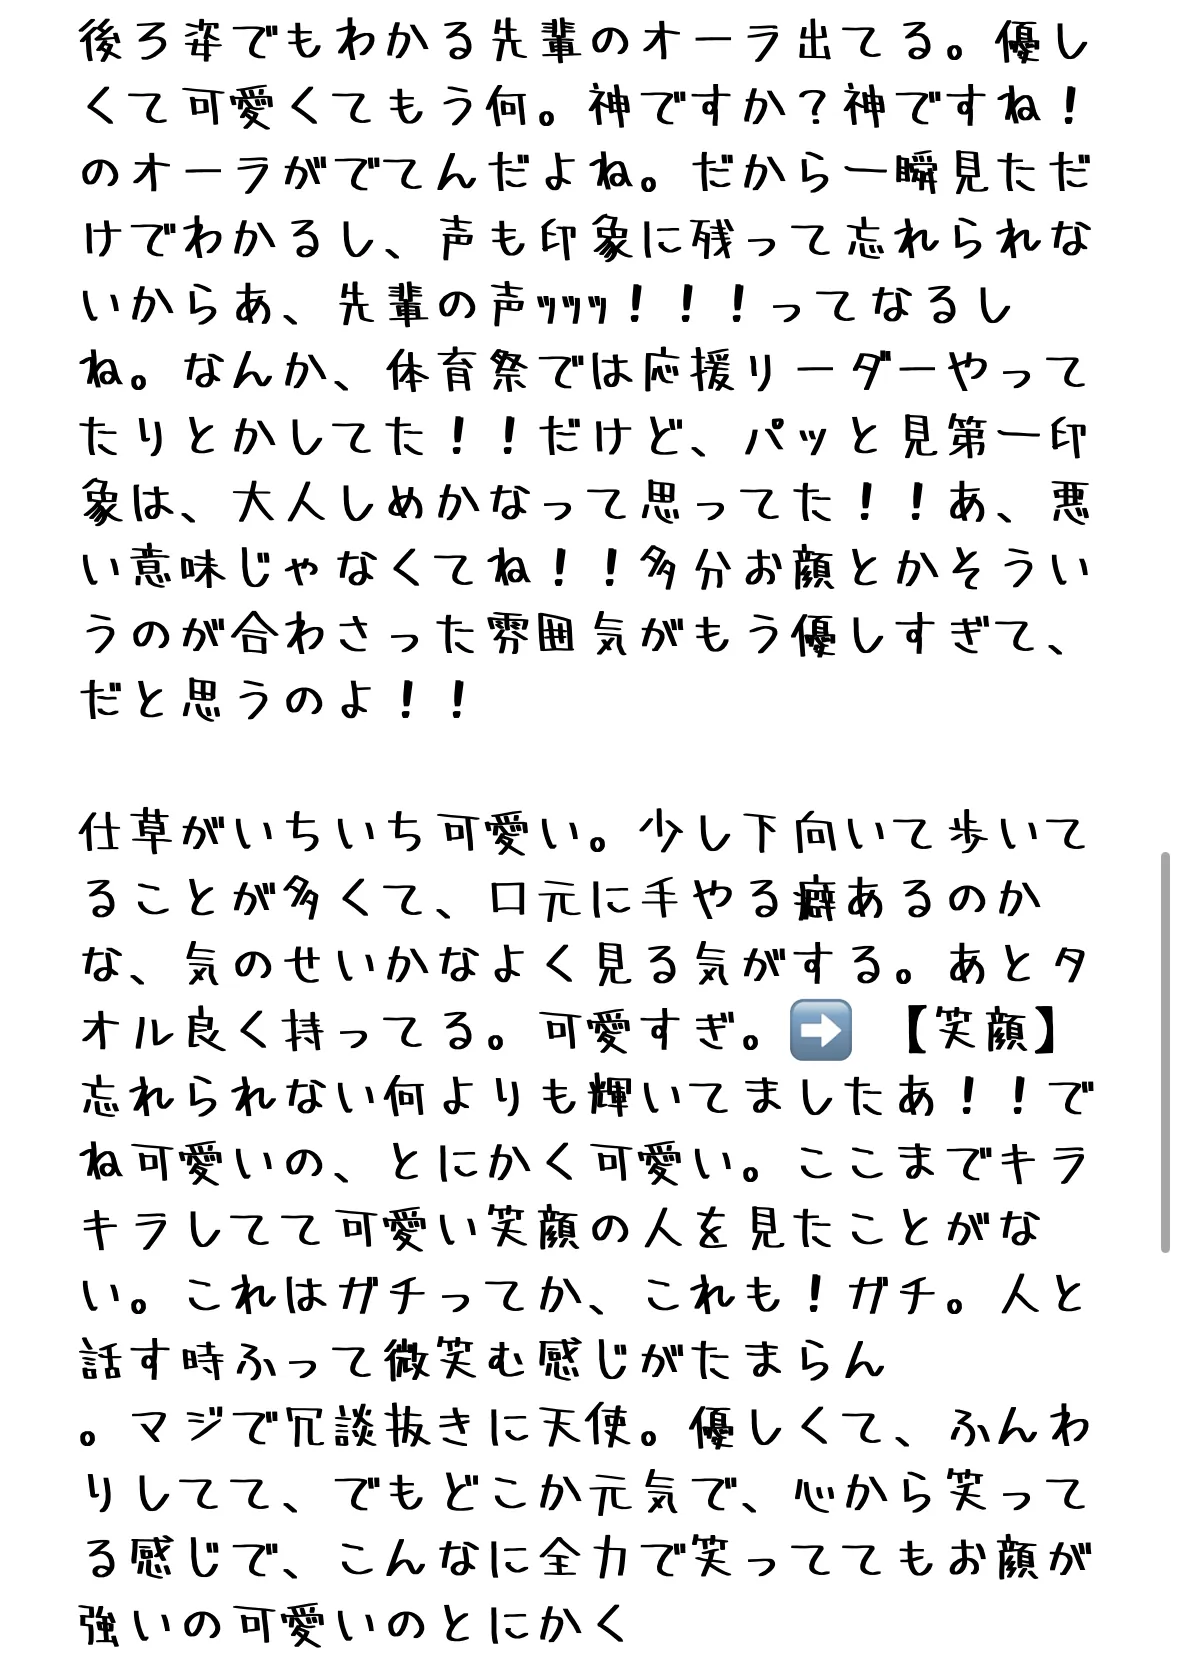 後ろ姿でもわかる先輩のオーラ出てる。優し
くて可愛くてもう何。神ですか？神ですね！
のオーラがでてんだよね。だから一瞬見ただ
けでわかるし、声も印象に残って忘れられな
いからあ、先輩の声ｯｯｯ！！！ってなるし
ね。なんか、体育祭では応援リーダーやって
たりとかしてた！！だけど、パッと見第一印
象は、大人しめかなって思ってた！！あ、悪
い意味じゃなくてね！！多分お顔とかそうい
うのが合わさった雰囲気がもう優しすぎて、
だと思うのよ！！
仕草がいちいち可愛い。少し下向いて歩いて
ることが多くて、口元に手やる癖あるのか
な、気のせいかなよく見る気がする。あとタ
オル良く持ってる。可愛すぎ。➡️ 【笑顔】
忘れられない何よりも輝いてましたあ！！で
ね可愛いの、とにかく可愛い。ここまでキラ
キラしてて可愛い笑顔の人を見たことがな
い。これはガチってか、これも！ガチ。人と
話す時ふって微笑む感じがたまらん
。マジで冗談抜きに天使。優しくて、ふんわ
りしてて、でもどこか元気で、心から笑って
る感じで、こんなに全力で笑っててもお顔が
強いの可愛いのとにかく